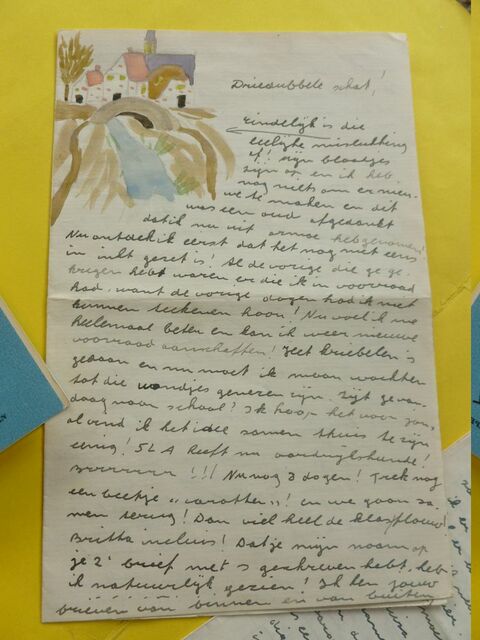 Driedubbele schat!
Eindelijk is die
leelijke mislukking
af! Mijn blaadjes
zijn op en ik heb
nog niets om er nieu-
we te maken en dit
was een oud afgedankt
dat ik nu uit armoe heb genomen!
Nu ontdek ik eerst dat het nog niet eens
in inkt gezet is! Al de vorige die ge ge-
kregen hebt waren er die ik in voorraad
had, want de vorige dagen had ik niet
kunnen teekenen hoor! Nu voel ik me
heelemaal beter en kan ik weer nieuwe
voorraad aanschaffen! Het kriebelen is
gedaan en nu moet ik maar wachten
tot die wondjes genezen zijn. Zijt ge van-
daag naar school? Ik hoop het voor jou,
al vind ik het idee samen thuis te zijn
eenig! 5LA heeft nu aardrijkskunde!
Brrrrrrr!!! Nu nog 3 dagen! Trek nog
een beetje "carotten"! en we gaan sa-
men terug! Dan viel heel de klas flauw!
Britta incluis! Dat je mijn naam op
je 2e brief met s geschreven hebt, heb
ik natuurlijk gezien! Ik ken jouw
brieven van binnen en van buiten